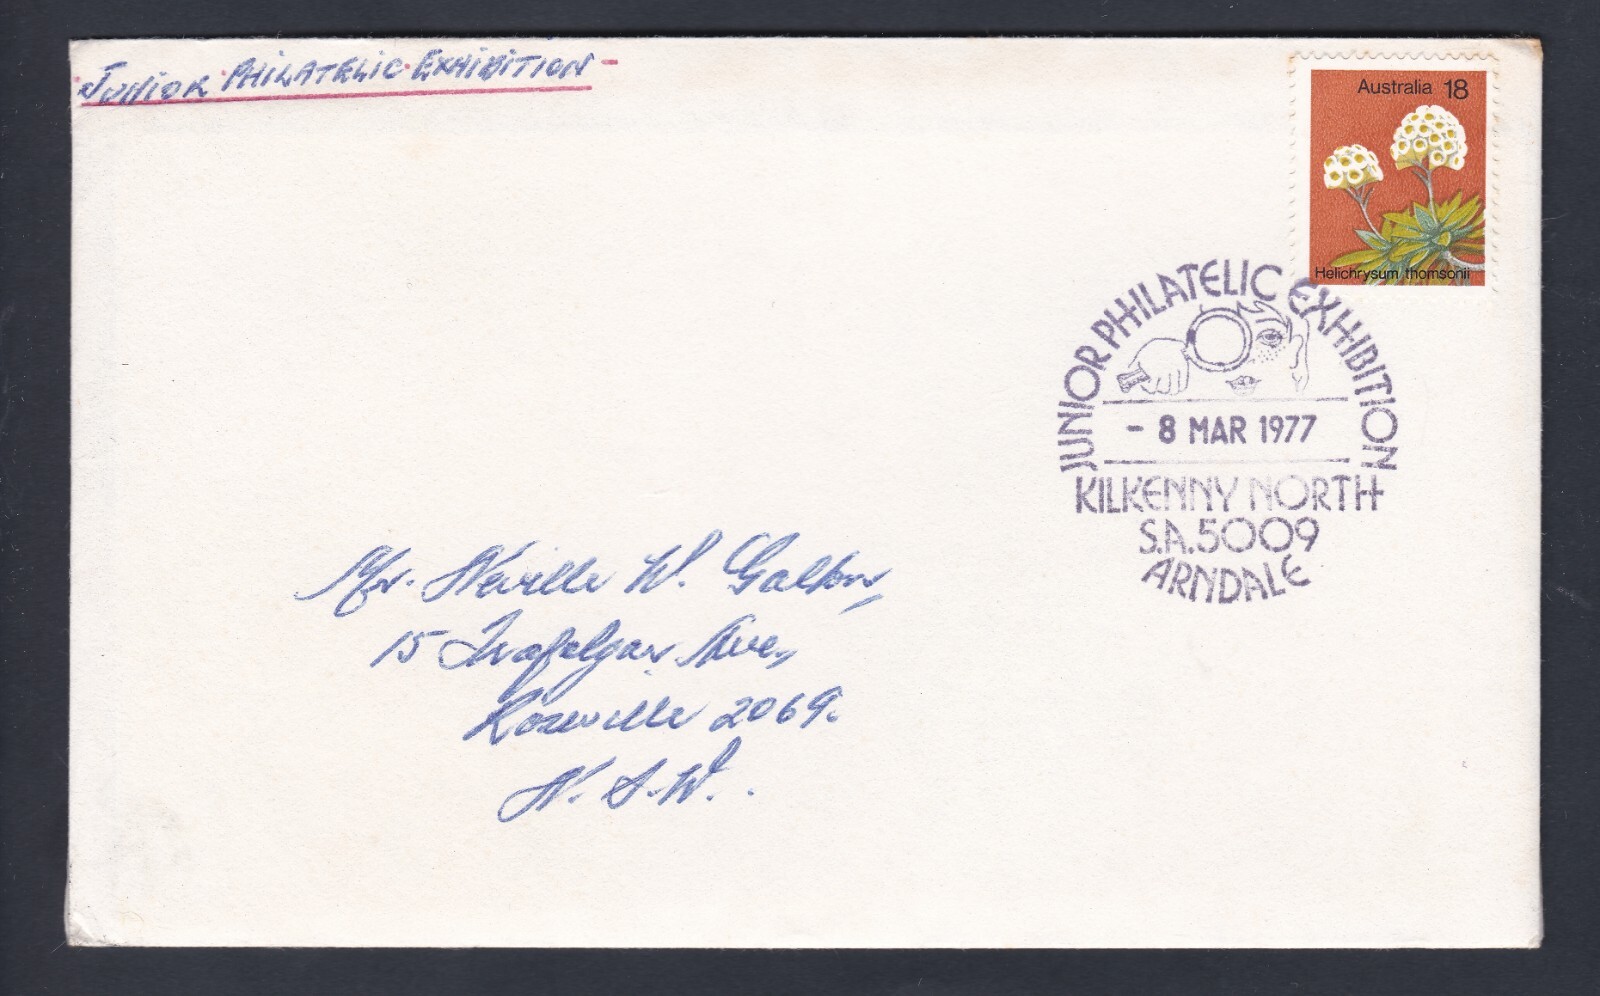 JUNIOR PHILATELIC EXHIBITION -
Australia 18
Helichrysum thomsonii
JUNIOR PHILATELIC EXHIBITION
- 8 MAR 1977
KILKENNY NORTH
S.A. 5009
ARNDALE
Mr. Neville W.
15 Trafalgar Ave,
Roseville 2069.
N.S.W.